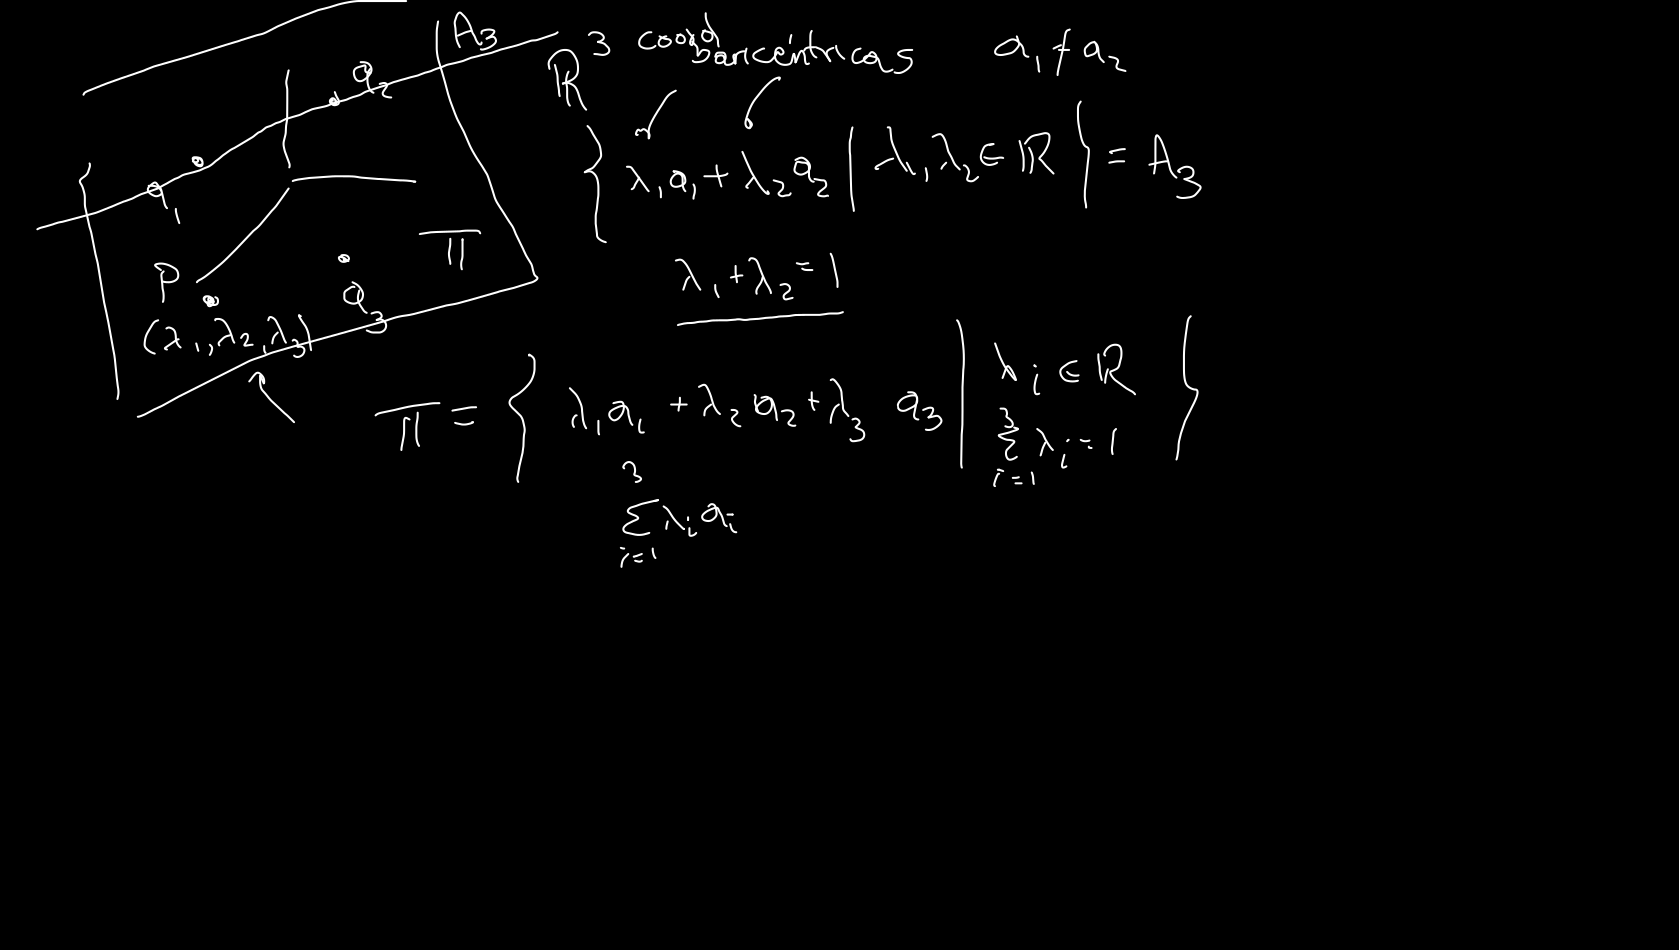 A₃
a₂
a₁
P
a₃
Π
(λ₁,λ₂,λ₃)
ℝ³ coord baricéntricas a₁ ≠ a₂
{ λ₁a₁ + λ₂a₂ | λ₁,λ₂ ∈ ℝ } = A₃
λ₁ + λ₂ = 1
Π = { λ₁a₁ + λ₂a₂ + λ₃ a₃ | λᵢ ∈ ℝ
3 Σ i=1 λᵢ = 1 }
3 Σ i=1 λᵢaᵢ